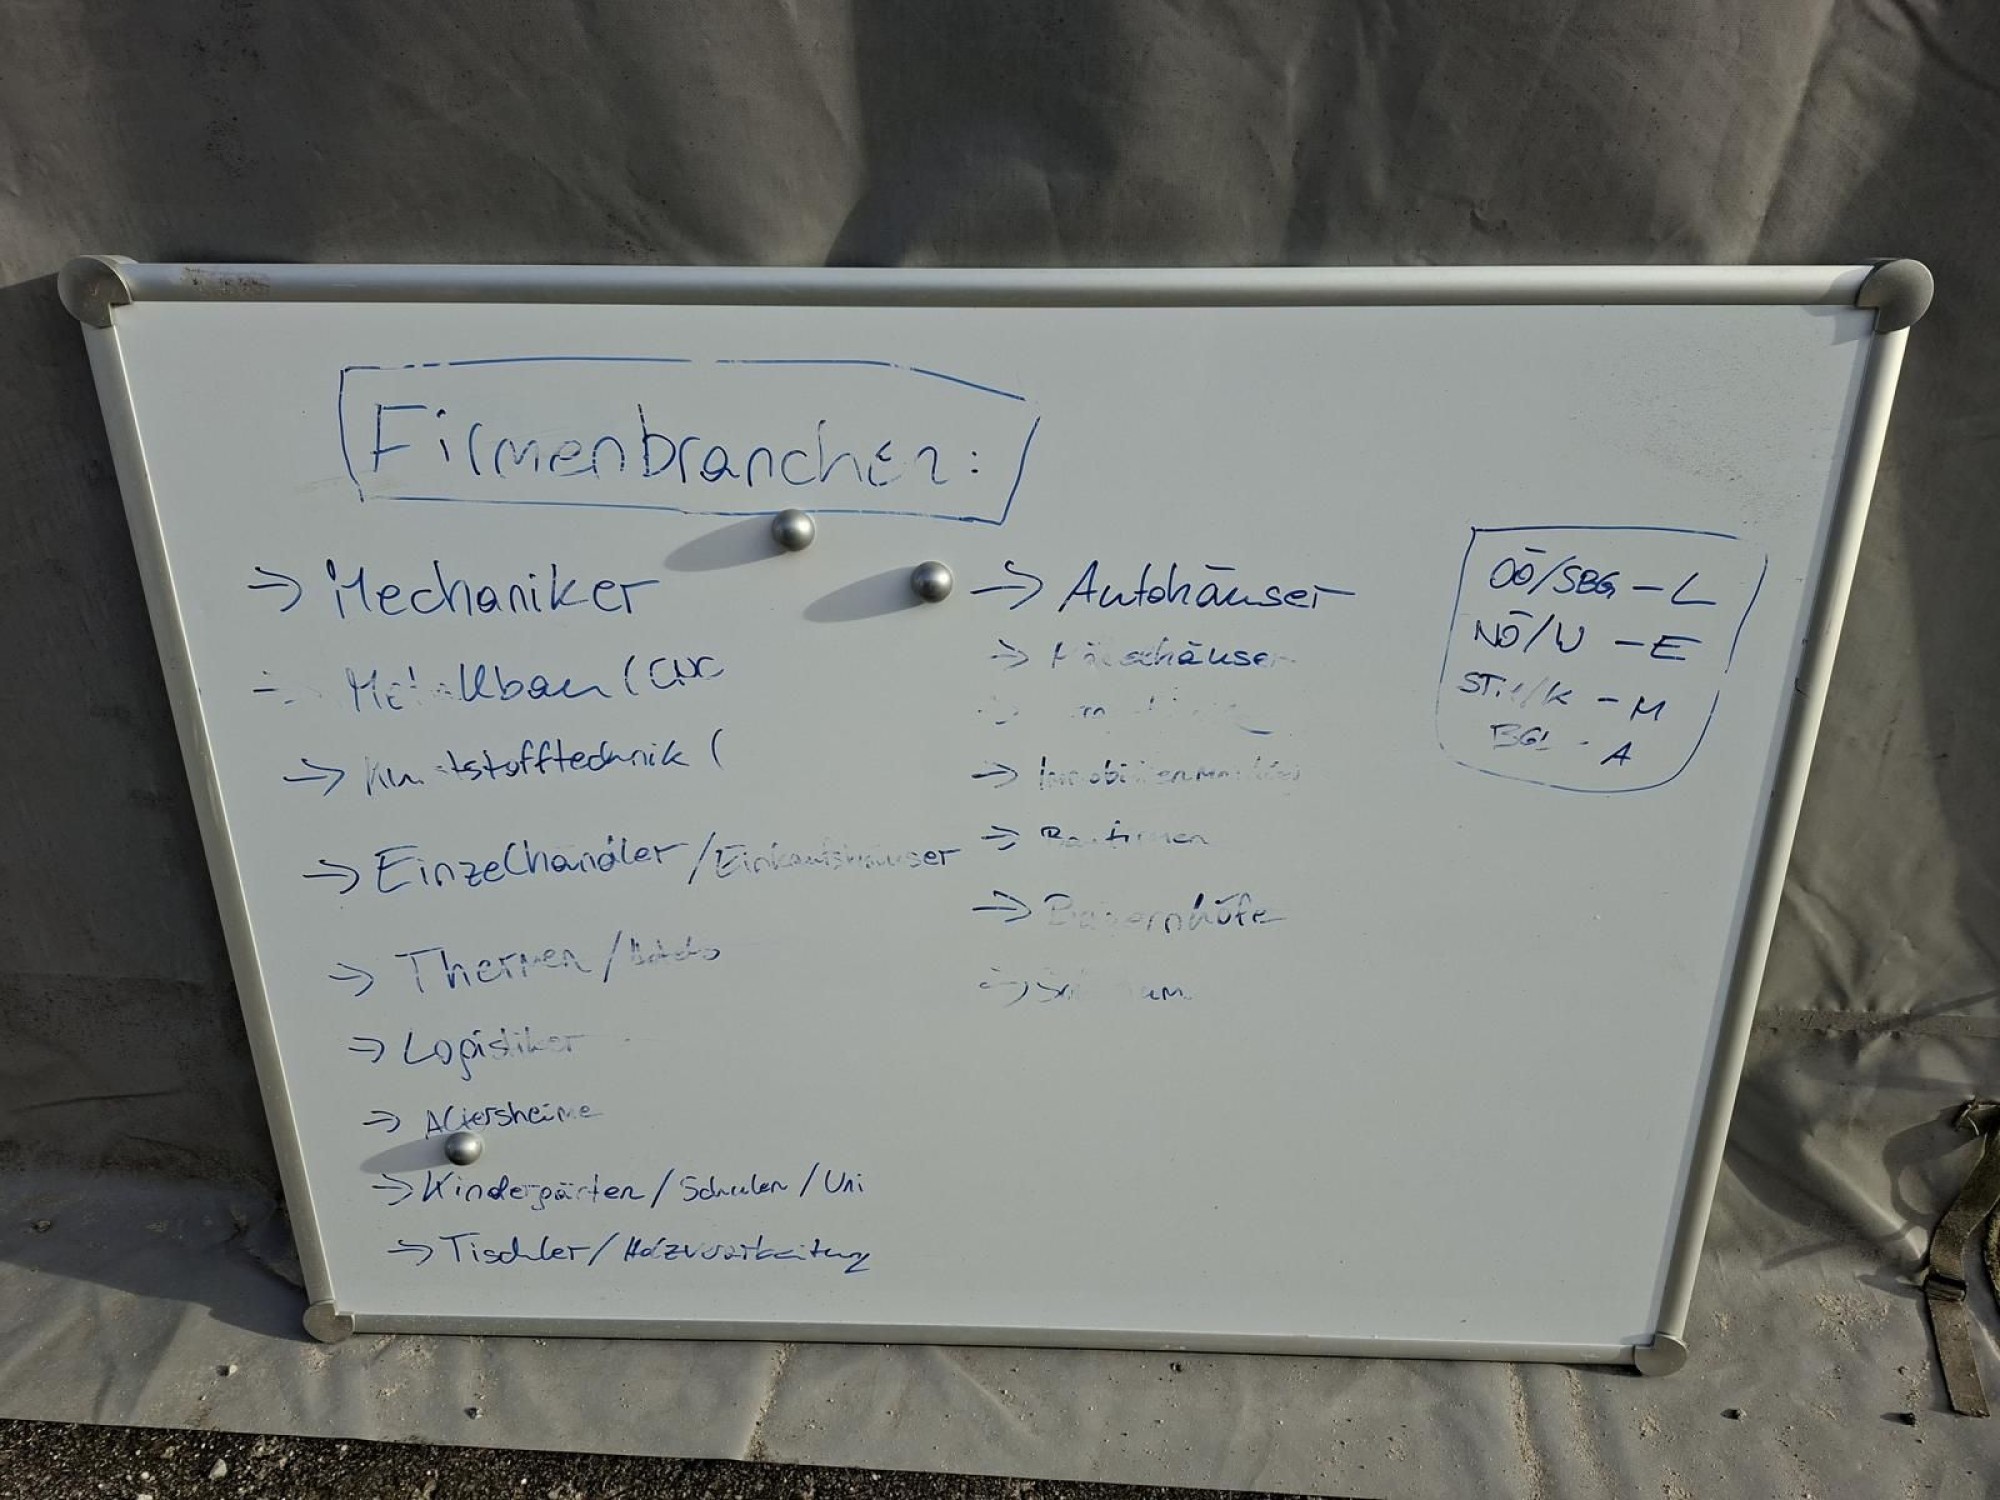 Firmenbranchen:
→ Mechaniker
→ Metallbau (CNC
→ Kunststofftechnik (
→ Einzelhändler / Einkaufshäuser
→ Thermen / Hotels
→ Logistiker
→ Altersheime
→ Kindergärten / Schulen / Uni
→ Tischler / Holzverarbeitung
→ Autohäuser
→
→
→ Immobilienmakler
→ Baufirmen
→ Bauernhöfe
→
OÖ/SBG - L
NÖ/W - E
STMK/K - M
BGL - A